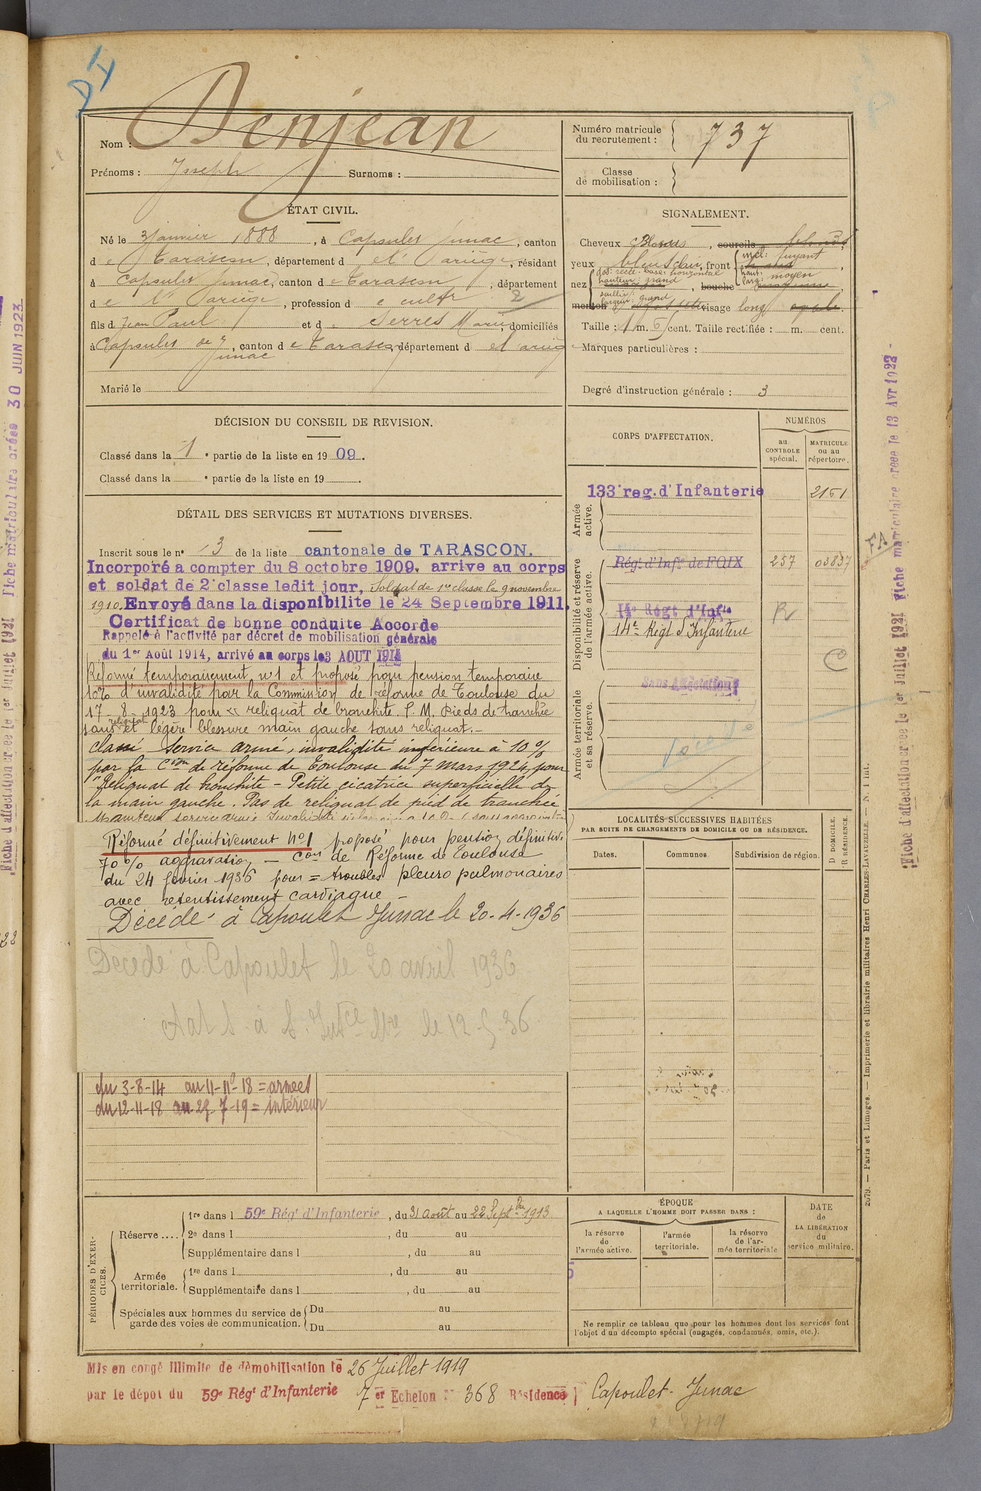 Nom : Denjean
Prénoms : Joseph Surnoms :
Numéro matricule du recrutement : 737
Classe de mobilisation :
ÉTAT CIVIL.
Né le 3 Janvier 1888, à Capoulet Junac, canton
de Tarascon, département de l'Ariège, résidant
à Capoulet Junac, canton de Tarascon, département
de l'Ariège, profession de cultr 2
fils de Jean Paul et de Serres Marie, domiciliés
à Capoulet de Junac, canton de Tarascon, département de l'Ariège
Marié le
SIGNALEMENT.
Cheveux , sourcils
yeux bleus clair, front incl: fuyant
haut: larg: moyen
nez dos: rect. base: horizontal
hauteur: grand
saillie: largeur: grand
, bouche
menton visage long
Taille : 1 m. cent. Taille rectifiée : m. cent.
Marques particulières :
Degré d'instruction générale : 3
DÉCISION DU CONSEIL DE REVISION.
Classé dans la 1 e partie de la liste en 1909.
Classé dans la e partie de la liste en 19
DÉTAIL DES SERVICES ET MUTATIONS DIVERSES.
Inscrit sous le n° 13 de la liste cantonale de TARASCON.
Incorporé a compter du 8 octobre 1909, arrive au corps
et soldat de 2e classe ledit jour, Soldat de 1re classe le 9 novembre
1910. Envoyé dans la disponibilite le 24 Septembre 1911.
Certificat de bonne conduite Accorde
Rappelé à l'activité par décret de mobilisation générale
du 1er Août 1914, arrivé au corps le 3 AOUT 1914
Réformé temporairement n°1 et proposé pour pension temporaire
10% d'invalidité par la Commission de réforme de Toulouse du
17-8-1923 pour "reliquat de bronchite P.M. Pieds de tranchée
sans reliquat et légère blessure main gauche sans reliquat.-
Classé Service armé, invalidité inférieure à 10%
par la Con de réforme de Toulouse du 7 mars 1924, pour
"Reliquat de bronchite - Petite cicatrice superficielle de
la main gauche. Pas de reliquat de pied de tranchée
Réformé définitivement N°1 proposé pour pension définitive
70% aggravation. - Con de Réforme de Toulouse
du 24 février 1936 pour = troubles pleuro pulmonaires
avec retentissement cardiaque -
Décédé à Capoulet Junac le 20-4-1936
Décédé à Capoulet le 20 avril 1936
le 12-5-36
du 3-8-14 au 11-11-18 = armées
du 12-11-18 au 25-7-19 = intérieur
CORPS D'AFFECTATION.
NUMÉROS
au CONTROLE spécial.
MATRICULE ou au répertoire.
Armée active.
133e reg. d'Infanterie 2151
Disponibilité et réserve de l'armée active.
Rég. d'Infie de FOIX 257 03837
R
14e Régt d'Infie
14e Régt d'Infanterie
C
Armée territoriale et sa réserve.
Sans Affectation
LOCALITÉS SUCCESSIVES HABITÉES
PAR SUITE DE CHANGEMENTS DE DOMICILE OU DE RÉSIDENCE.
Dates. Communes. Subdivision de région. D DOMICILE. R RÉSIDENCE.
PÉRIODES D'EXERCICES.
Réserve .... 1re dans l 59e Régt d'Infanterie, du 31 août au 22 Septbre 1913.
2e dans l , du au
Supplémentaire dans l , du au
Armée territoriale. 1re dans l , du au
Supplémentaire dans l , du au
Spéciales aux hommes du service de garde des voies de communication. Du au
Du au
ÉPOQUE
A LAQUELLE L'HOMME DOIT PASSER DANS :
la réserve de l'armée active.
l'armée territoriale.
la réserve de l'armée territoriale
DATE DE LA LIBÉRATION du service militaire.
Ne remplir ce tableau que pour les hommes dont les services font
l'objet d'un décompte spécial (engagés, condamnés, omis, etc.).
Mis en congé illimité de démobilisation le 26 Juillet 1919
par le dépot du 59e Régt d'Infanterie 7er Echelon N° 368 Résidence Capoulet-Junac
2079. — Paris et Limoges. — Imprimerie et librairie militaires Henri CHARLES-LAVAUZELLE.
Fiche d'affectation créée le 1er Juillet 1921 Fiche matriculaire créée le 13 Avr 1922
FA
Fiche d'affectation créée le 1er Juillet 1921 Fiche matriculaire créée 30 JUIN 1923